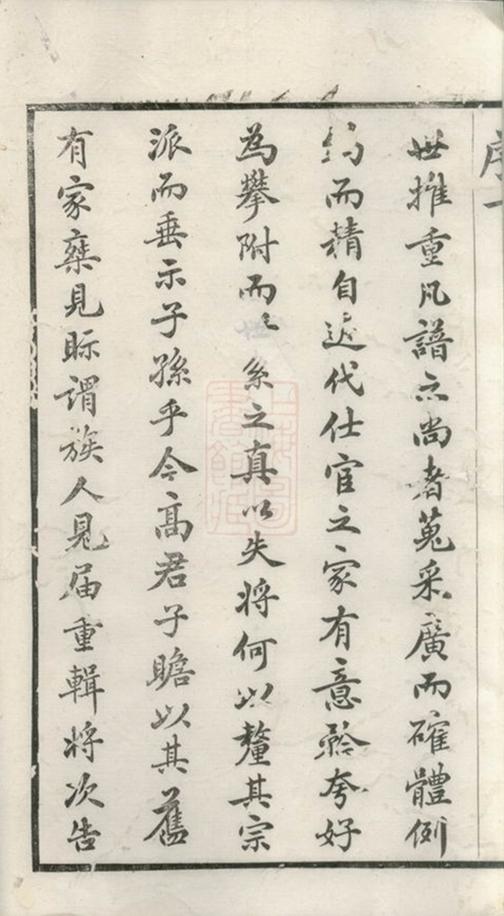 序一
世推重凡譜亦尚者蒐采廣而確體例
約而精自近代仕宦之家有意矜夸好
為攀附而世系之真以失將何以釐其宗
派而垂示子孫乎今高君子瞻以其舊
有家乘見眎謂族人見届重輯將次告